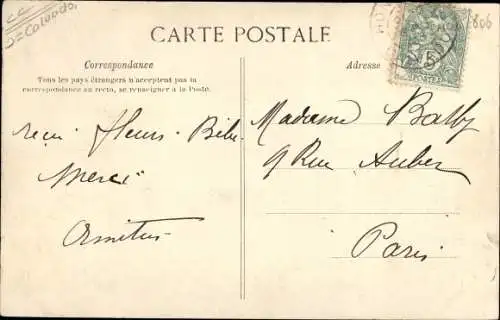 CARTE POSTALE
Correspondance
Tous les pays étrangers n'acceptent pas la
correspondance au recto, se renseigner à la Poste.
Adresse
POSTES
reçu fleurs
Merci
Madame Bally
9 Rue Auber
Paris